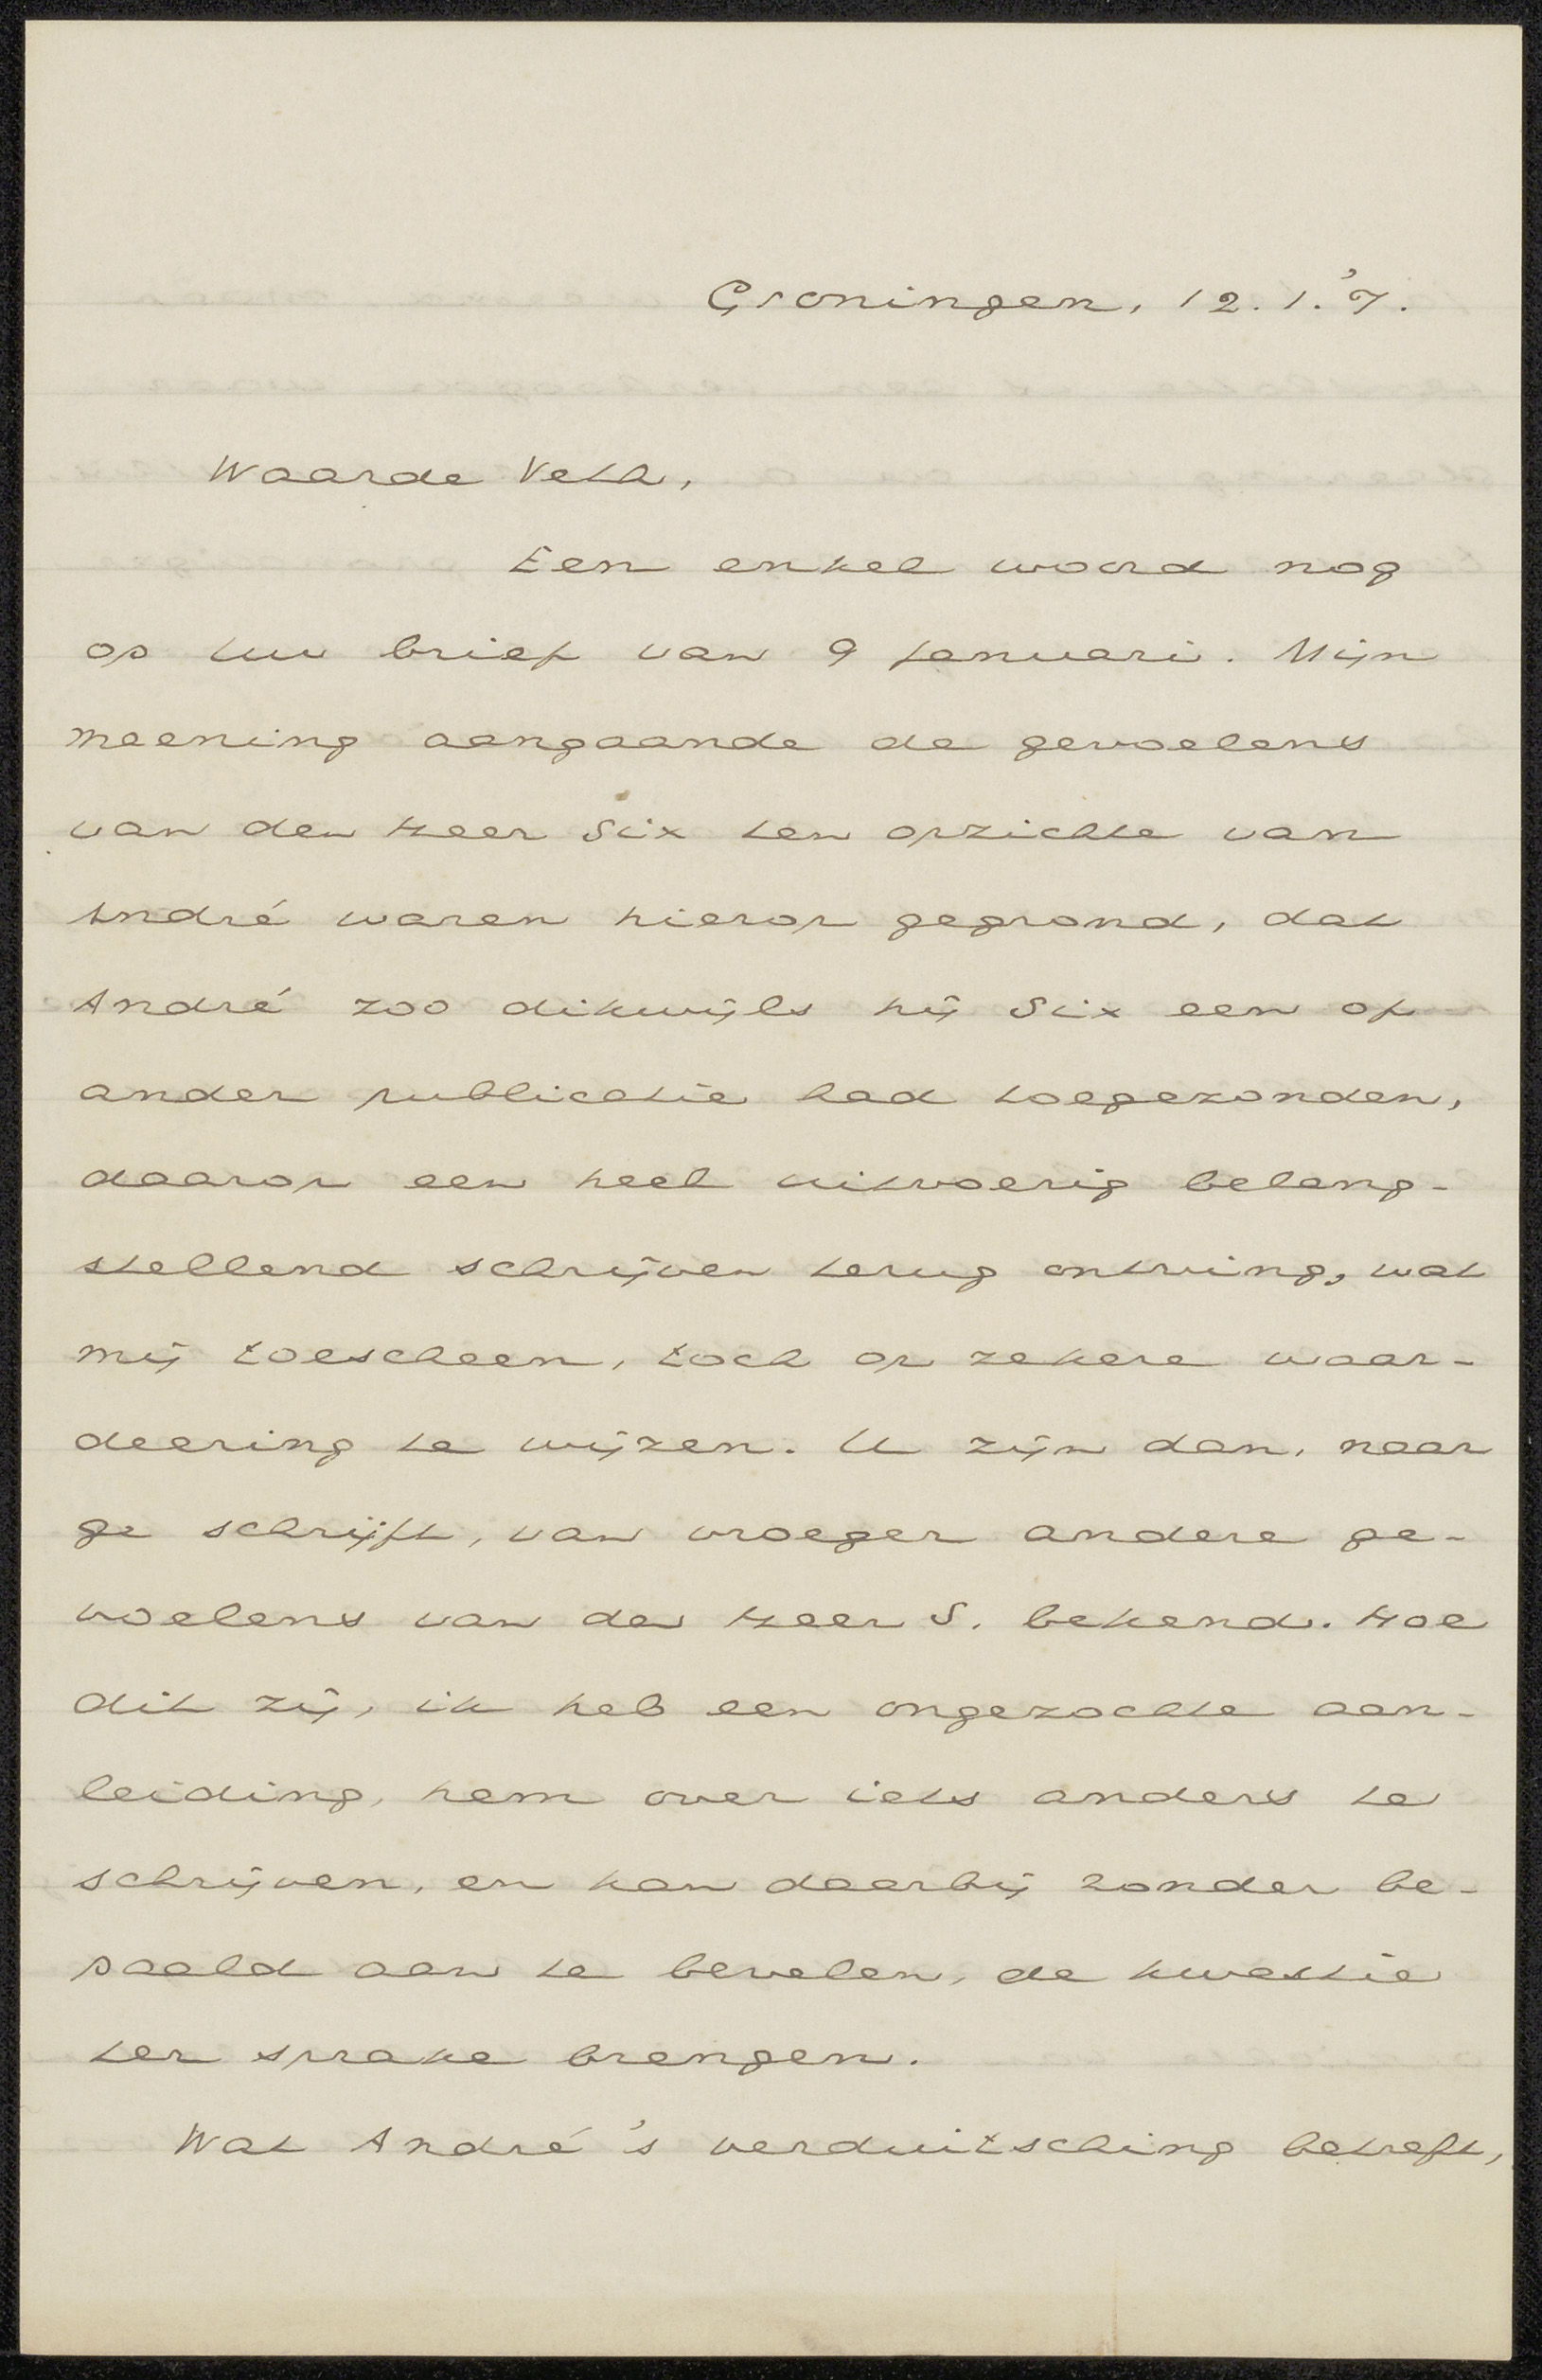 Groningen, 12.1.'7.
Waarde Veth,
Een enkel woord nog
op Uw brief van 9 Januari. Mijn
meening aangaande de gevoelens
van den Heer Six ten opzichte van
André waren hierop gegrond, dat
André zoo dikwijls hij Six een of
ander publicatie had toegezonden,
daarop een heel uitvoerig belang-
stellend schrijven terug ontving, wat
mij toescheen, toch op zekere waar-
deering te wijzen. U zijn dan, naar
ge schrijft, van vroeger andere ge-
voelens van den Heer S. bekend. Hoe
dit zij, ik heb een ongezochte aan-
leiding, hem over iets anders te
schrijven, en kan daarbij zonder be-
paald aan te bevelen, de kwestie
ter sprake brengen.
Wat André's verduitsching betreft,